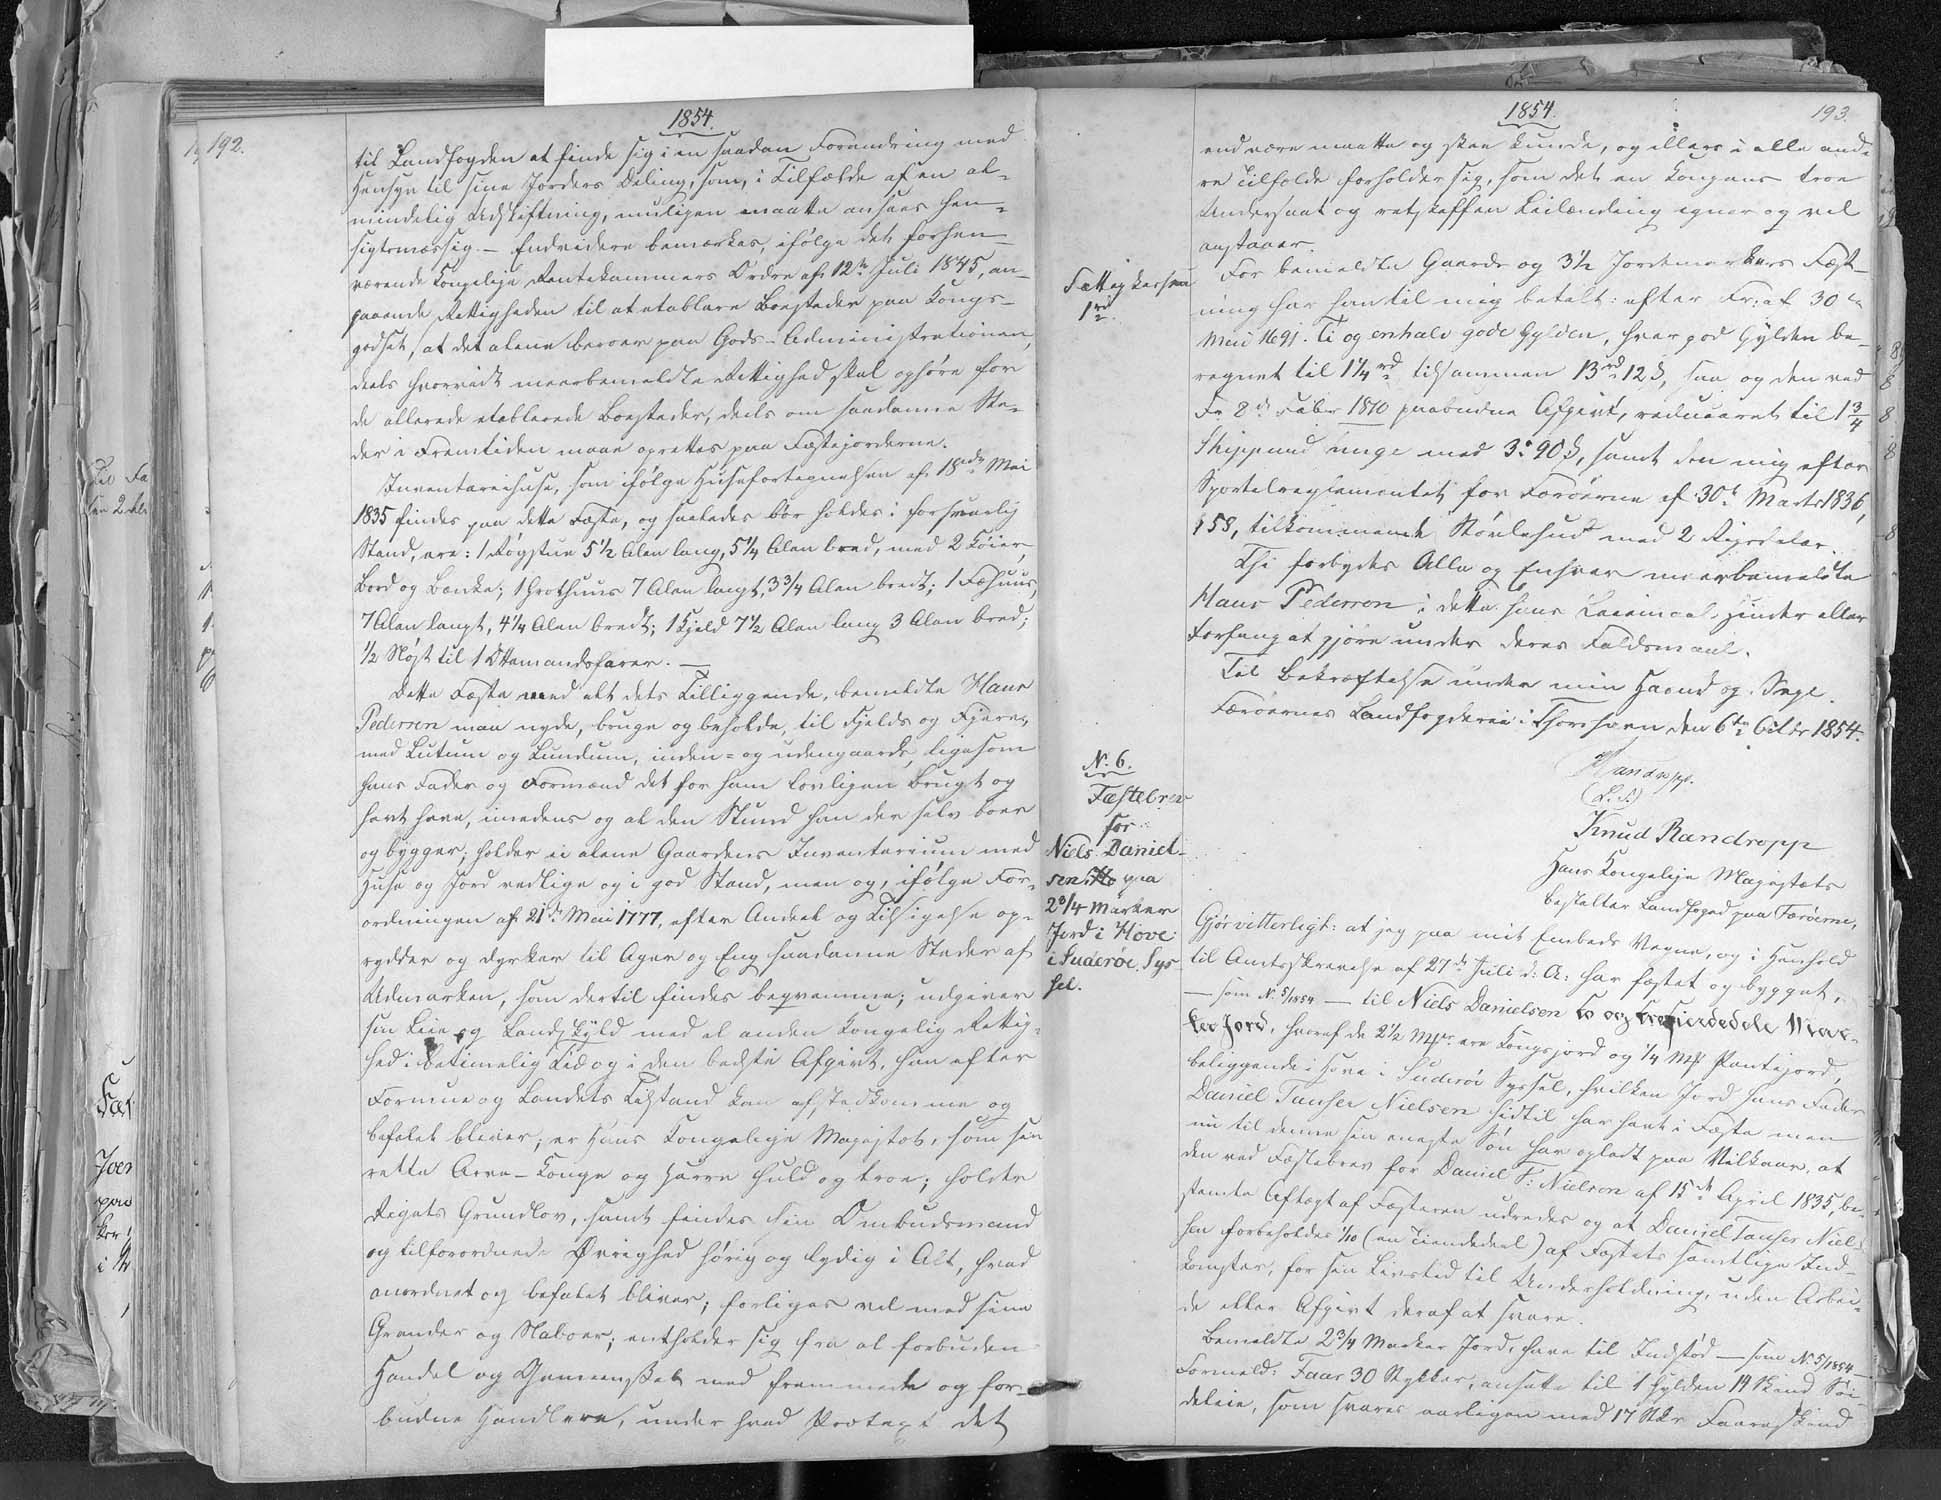 192.
1854.
til Landfogden at finde sig i en saadan Forandring med
Hensyn til sine Jorders Deling, som, i Tilfælde af en al-
mindelig Udskiftning, muligen maatte ansees hen-
sigtsmæssig. — Endvidere bemærkes, ifølge det forhen-
værende Kongelige Rentekammers Ordre af 12te Juli 1845, an-
gaaende Rettigheden til at etablere Boesteder paa Kongs-
godset, at det alene beroer paa Gods-Administrationen,
deels hvorvidt meerbemeldte Rettighed skal ophøre for
de allerede etablerede Boesteder, deels om saadanne Ste-
der i Fremtiden maae oprettes paa Fæstejorderne.
Inventariihuse, som ifølge Husefortegnelsen af 18de Mai
1835 findes paa dette Fæste, og saaledes bør holdes i forsvarlig
Stand, ere: 1 Røgstue 5½ Alen lang, 5¼ Alen bred, med 2 Køier,
Bord og Bænke; 1 Grothuus 7 Alen langt, 3¾ Alen bredt; 1 Fæhuus,
7 Alen langt, 4¼ Alen bredt; 1 Hjeld 7½ Alen lang 3 Alen bred;
½ Nøst til 1 Ottemandsfarer. —
Dette Fæste med alt dets Tilliggende, bemeldte Hans
Pedersen maa nyde, bruge og beholde, til Fjelds og Fjære,
med Lutum og Lundum, inden- og udengaards, ligesom
hans Fader og Formænd det for ham lovligen brugt og
havt have, imedens og al den Stund han der selv boer
og bygger; holder ei alene Gaardens Inventarium med
Huse og Jord vedlige og i god Stand, men og, ifølge For-
ordningen af 21de Mai 1777, efter Andeel og Tilsigelse op-
rydder og dyrker til Ager og Eng saadanne Steder af
Udmarken, som dertil findes beqvemme; udgiver
sin Leie og Landskyld med al anden Kongelig Rettig-
hed i betimelig Tid og i den bedste Afgivt, han efter
Formue og Landets Tilstand kan afstedkomme og
befalet bliver; er Hans Kongelige Majestæt, som sin
rette Arve-Konge og Herre huld og troe; holder
Rigets Grundlov, samt findes sin Ombudsmand
og tilforordnede Øvrighed hørig og lydig i Alt, hvad
anordnet og befalet bliver; forliges vel med sine
Grander og Naboer; entholder sig fra al forbuden
Handel og Gemeenskab med fremmede og for-
budne Handlere, under hvad Prætext det
1854.
193.
end være maatte og skee kunde, og ellers i alle and-
re Tilfælde forholder sig, som det en Kongens troe
Undersaat og retskaffen Leilænding egner og vel
anstaaer.
Fattigkassen
1 rd.
For bemeldte Gaards og 3½ Jordemarkers Fæst-
ning har han til mig betalt: efter Fr: af 30te
Mai 1691. Ti og enhalv gode Gylden, hver god Gylden be-
regnet til 1¼ rd tilsammen 13 rd 12 s, saa og den ved
Fr. 8de Febr 1810 paabudne Afgivt, reduceret til 1¾
Skippund unge med 3: 90 s, samt den mig efter
Sportelreglementet for Færöerne af 30te Marts 1836,
§ 58, tilkommende Støvlehud med 2 Rigsdaler.
Thi forbydes Alle og Enhver meerbemeldte
Hans Pedersen i dette hans Leiemaal Hinder eller
Forfang at gjøre under deres Faldsmaal.
Til Bekræftelse under min Haand og Segl.
Færöernes Landfogderie i Thorshavn den 6te Octbr 1854.
(L. S.)
N. 6.
Fæstebrev
for
Niels Daniel-
sen paa
2¾ Marker
Jord i Hove
i Suderøe Sys-
sel.
Knud Randropp
Hans Kongelige Majestæts
bestalter Landfoged paa Færöerne,
Gjør vitterligt: at jeg paa mit Embeds Vegne, og i Henhold
til Amtsskrivelse af 27de Juli d: A: har fæstet og bygget,
— som N. 5/1854 — til Niels Danielsen To og trefierdedele Mar-
ker Jord, hvoraf de 2½ Mkr. ere Kongsjord og ¼ Mk Pantejord,
beliggende i Hove i Suderöe Syssel, hvilken Jord hans Fader
Daniel Tauser Nielsen hidtil har havt i Fæste men
nu til denne sin eneste Søn har opladt paa Vilkaar, at
den ved Fæstebrev for Daniel T: Nielsen af 15de April 1835, be-
stemte Aftægt af Fæsteren udredes og at Daniel Tauser Niel-
sen forbeholdes 1/10 (en Tiendedeel) af Fæstets samtlige Ind-
komster, for sin Livstid til Underholdning, uden Arbei-
de eller Afgivt deraf at svare.
Bemeldte 2¾ Marker Jord, have til Indstød — som N. 5/1854 —
formeld: Faar 30 Stykker, ansatte til 1 Gylden 14 Skind
deleie, som svares aarligen med 17 Stkr Faareskind